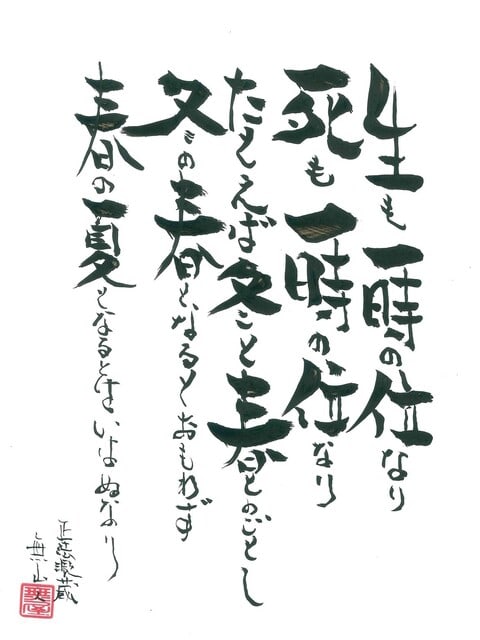 生も一時の位なり
死も一時の位なり
たとえば冬と春とのごとし
冬の春となるとおもわず
春の夏となるとはいはぬなり
正法眼蔵
無山